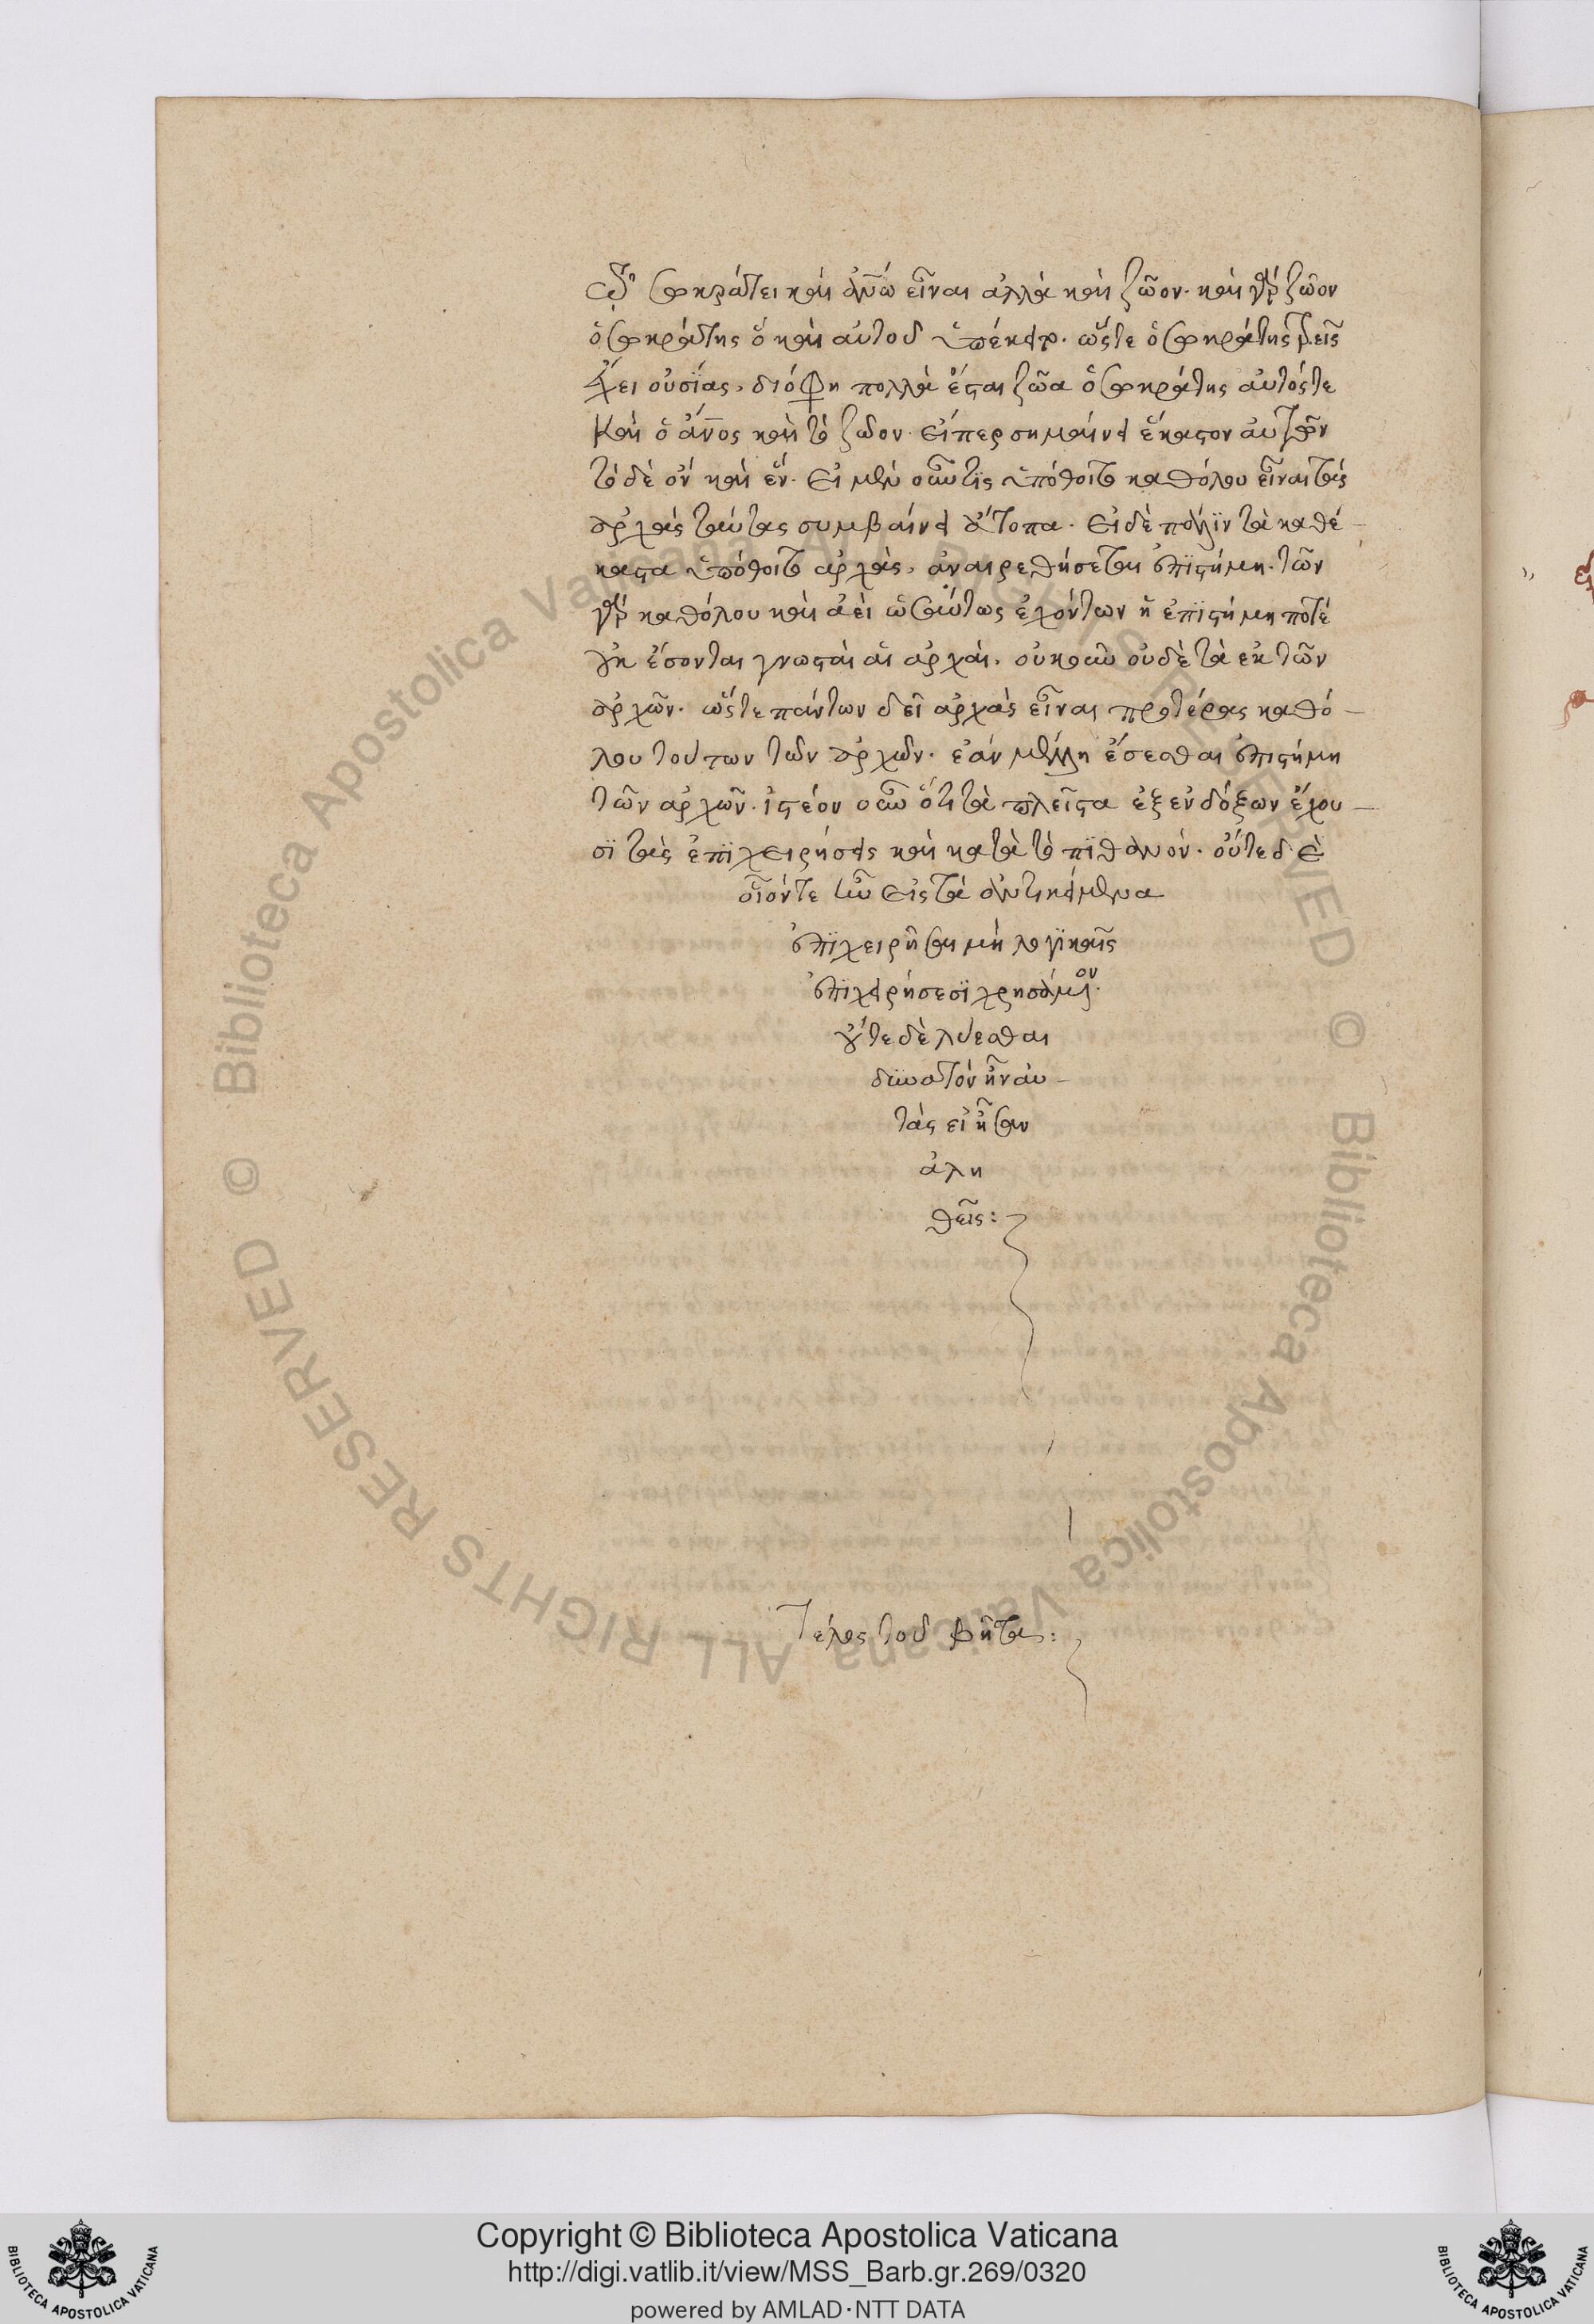 τῷ Σωκράτει καὶ ἀν̅ω εἶναι ἀλλὰ καὶ ζῶον. καὶ γὰρ ζῶον
ὁ Σωκράτης ὃ καὶ αὐτοῦ ὑπέκειτο. ὥστε ὁ Σωκράτης τρεῖς
ἕξει οὐσίας, διό φη πολλὰ ἔσται ζῶα ὁ Σωκράτης αὐτός τε
καὶ ὁ ἄν̅ος καὶ τὸ ζῶον. εἴπερ σημαίνει ἕκαστον αὐτῶν
τόδε ὂν καὶ ἕν. εἰ μὲν οὖν τις ὑπόθοιτο καθόλου εἶναι τὰς
ἀρχὰς ταύτας συμβαίνει ἄτοπα. εἰ δὲ πάλιν τὰ καθέ-
καστα ὑπόθοιτο ἀρχὰς, ἀναιρεθήσεται ἐπιστήμη. τῶν
γὰρ καθόλου καὶ ἀεὶ ὡσαύτως ἐχόντων ἡ ἐπιστήμη ποτέ
οὐκ ἔσονται γνωσταὶ αἱ ἀρχαί. οὐκοῦν οὐδὲ τὰ ἐκ τῶν
ἀρχῶν. ὥστε πάντων δεῖ ἀρχὰς εἶναι προτέρας καθό-
λου τούτων τῶν ἀρχῶν. ἐὰν μέλλη ἔσεσθαι ἐπιστήμη
τῶν ἀρχῶν. ἰστέον οὖν ὅτι τὰ πλεῖστα ἐξ ἐνδόξων ἔχου-
σι τὰς ἐπιχειρήσεις καὶ κατὰ τὸ πιθανόν. οὔτε δὲ
οἷόν τε ἦν εἰς τὰ ἀντικείμενα
ἐπιχειρῆσαι μὴ λογικαῖς
ἐπιχειρήσεσι χρησάμενον.
οὔτε δὲ λύεσθαι
δυνατὸν ἦν αὐ-
τὰς εἰ ἦσαν
ἀλη
θεῖς:
Τέλος τοῦ βῆτα:
Copyright © Biblioteca Apostolica Vaticana
http://digi.vatlib.it/view/MSS_Barb.gr.269/0320
powered by AMLAD·NTT DATA